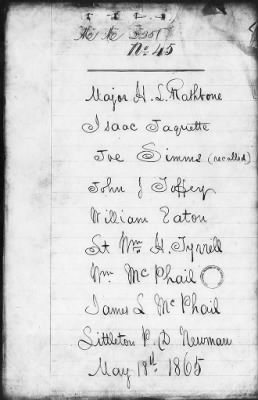 No 45
Major H. L. Rathbone
Isaac Jaquette
Joe Simms (recalled)
John J Toffey
William Eaton
Lt Wm H. Tyrrell
Wm McPhail
James L McPhail
Littleton P. D. Newman
May 18th 1865